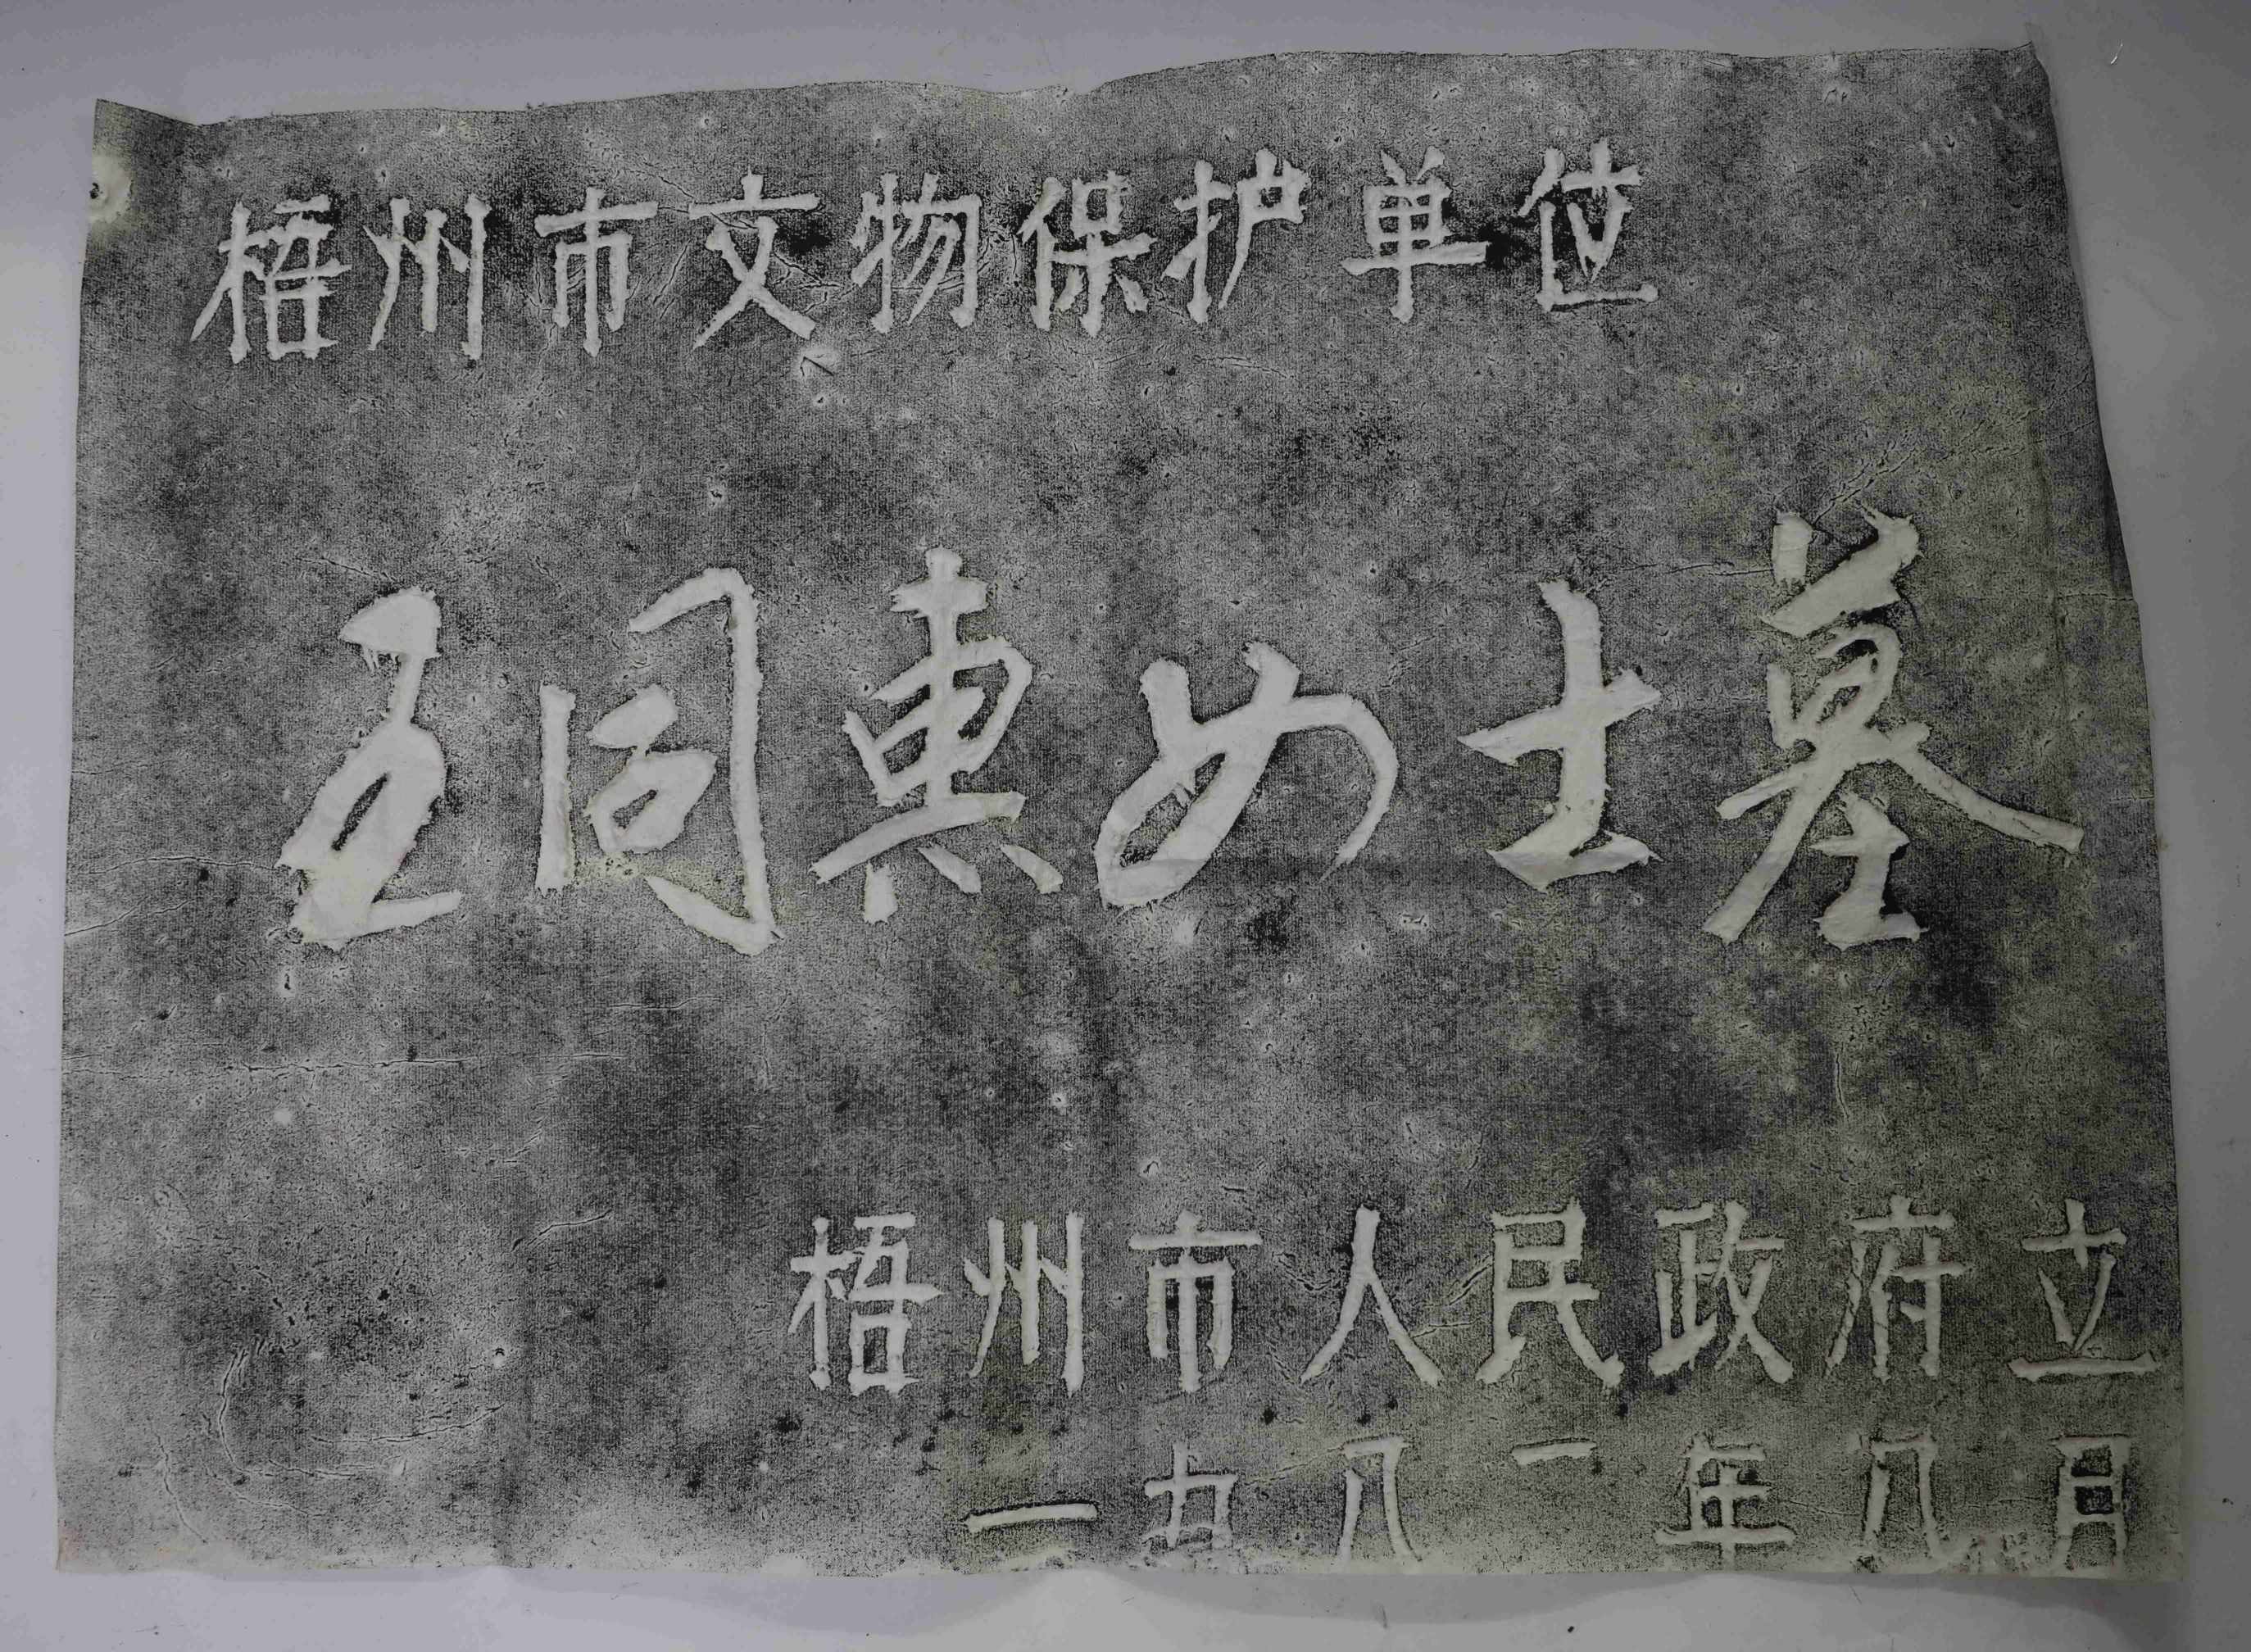 梧州市文物保护单位
王同惠女士墓
梧州市人民政府立
一九八一年八月